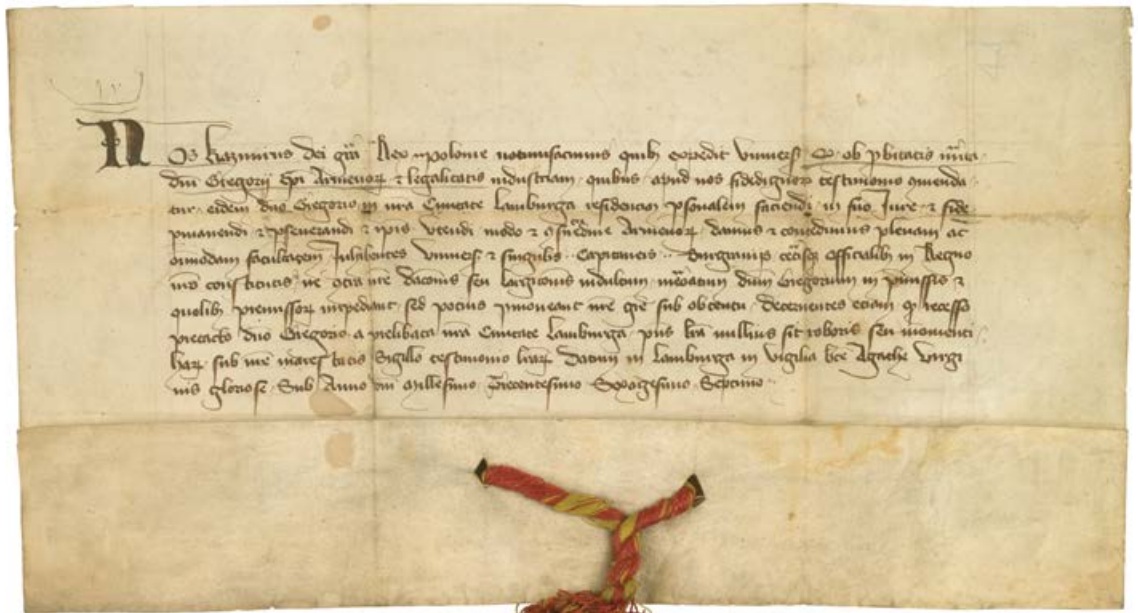 Nos Kazimirus dei gra Rex polonie notumfacimus quibꝫ expedit Uniuers Qz ob ꝓbitatis mita
dni Gregorij Epi Armenoꝝ ⁊ legalitatis industriam quibus apud nos fidedignoꝝ testimonio ꝯmenda
tur eidem dno Gregorio in nra Ciuitate Lamburga residenciam ꝑsonalem faciendi in suo Jure ⁊ fide
ꝑmanendi ⁊ ꝑseuerandi ⁊ ipis vtendi modo ⁊ ꝯsuetudine Armenoꝝ damus ⁊ concedimus plenam ac
oimodam facultatem Inhibentes Vniuers ⁊ singulis Capitaneis Burgrauijs cetisqꝫ officialibꝫ in Regno
nro constitutis ne ꝯtra nre dacionis seu largicionis indultum meoatum dnm Gregorium in pmissis ⁊
quolibꝫ premissoꝝ impediant sed pocius ꝓmoueant nre gre sub obtentu decernentes eciam qz recesso
pretacto dno Gregorio a prelibata nra Ciuitate Lamburga pns lra nullius sit roboris seu momenti
harꝝ sub nre maiestatis Sigillo testimonio lrarꝝ Datum in Lamburga in Vigilia bte Agathe Virgi
nis gloriose Sub Anno dni Millesimo Trecentesimo Sexagesimo Septimo